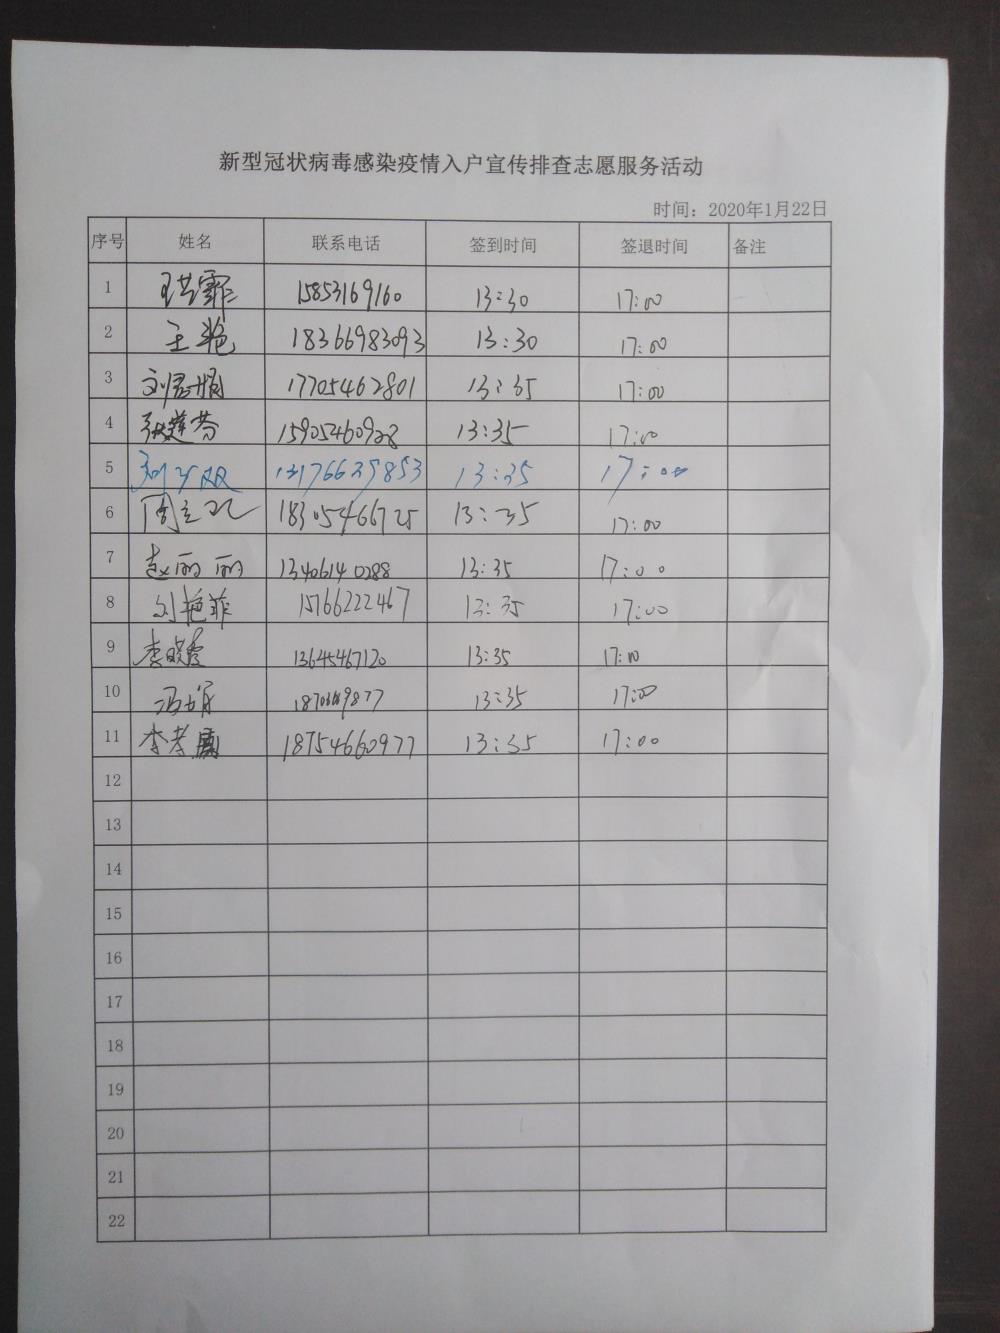 新型冠状病毒感染疫情入户宣传排查志愿服务活动
时间：2020年1月22日
序号 姓名 联系电话 签到时间 签退时间 备注
1 15853169160 13:30 17:00
2 王艳 18366983093 13:30 17:00
3 刘君娟 17705462801 13:35 17:00
4 张莲芬 15905460928 13:35 17:00
5 13176629853 13:35 17:00
6 18305466725 13:35 17:00
7 赵丽丽 13406140288 13:35 17:00
8 刘艳菲 15166222467 13:35 17:00
9 李晓霞 13645467120 13:35 17:00
10 13:35 17:00
11 18754660977 13:35 17:00
12
13
14
15
16
17
18
19
20
21
22